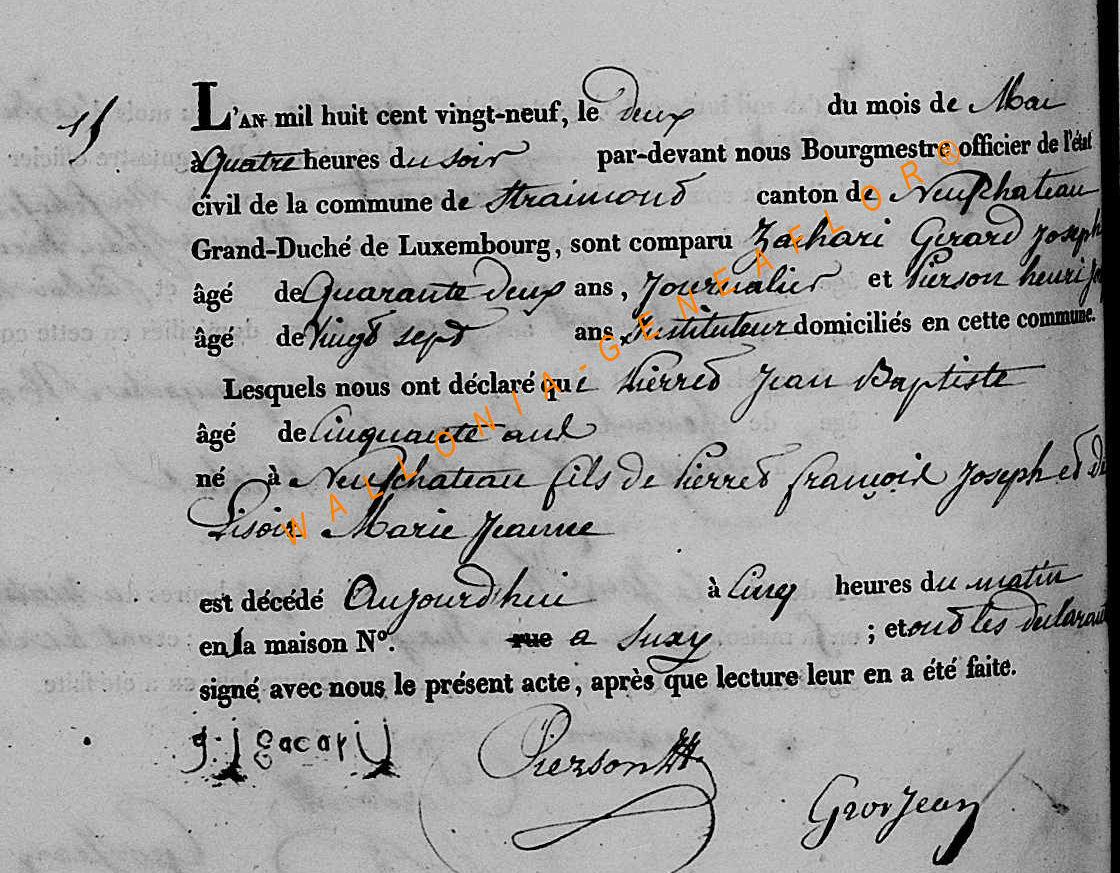 L'AN mil huit cent vingt-neuf, le deux du mois de Mai
à Quatre heures du soir par-devant nous Bourgmestre officier de l'état
civil de la commune de Straimond canton de Neufchateau
Grand-Duché de Luxembourg, sont comparu Zachari Girard Joseph
âgé de Quarante deux ans, Journalier et Pierson henri
âgé de Vingt sept ans, Instituteur domiciliés en cette commune.
Lesquels nous ont déclaré que Pierred Jean Baptiste
âgé de Cinquante ans
né à Neufchateau fils de Pierred françois Joseph et de
Lisoir Marie Jeanne
est décédé Aujourd'hui à Cinq heures du matin
en la maison N°. rue a Suxy ; et ont les declarant
signé avec nous le présent acte, après que lecture leur en a été faite.
g. j zacarij Pierson H.
GrosJean
WALLONIA-GENEAFLOR®